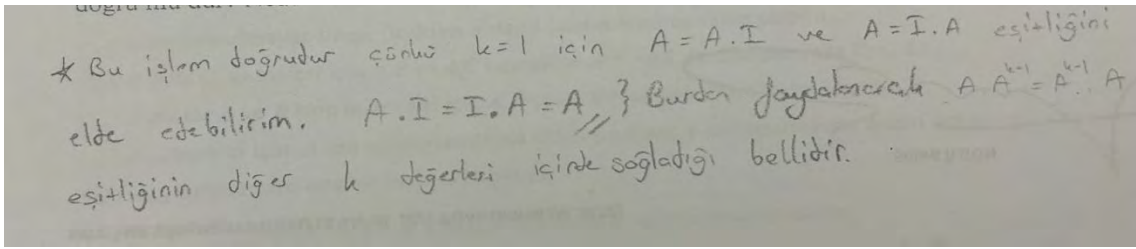 * Bu işlem doğrudur çünkü k=1 için A = A.I ve A = I.A eşitliğini
elde edebilirim. A.I = I.A = A,, } Burdan faydalanarak A A^{k-1} = A^{k-1}. A
eşitliğinin diğer k değerleri içinde sağladığı bellidir.